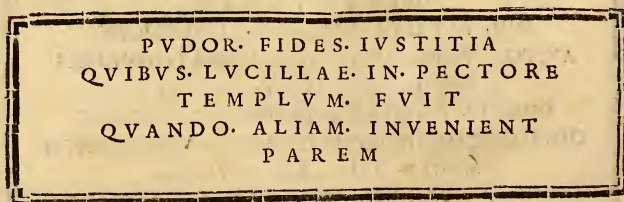 PVDOR. FIDES. IVSTITIA
QVIBVS. LVCILLAE. IN. PECTORE
TEMPLVM. FVIT
QVANDO. ALIAM. INVENIENT
PAREM